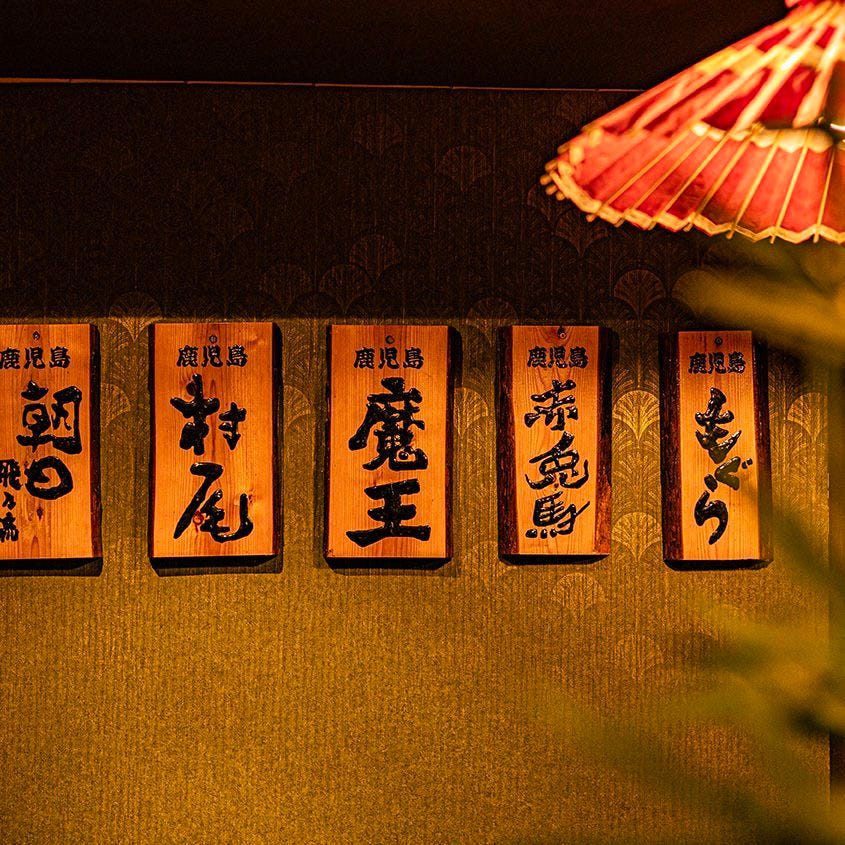 鹿児島
朝日
飛乃流
鹿児島
村尾
鹿児島
魔王
鹿児島
赤兎馬
鹿児島
もぐら